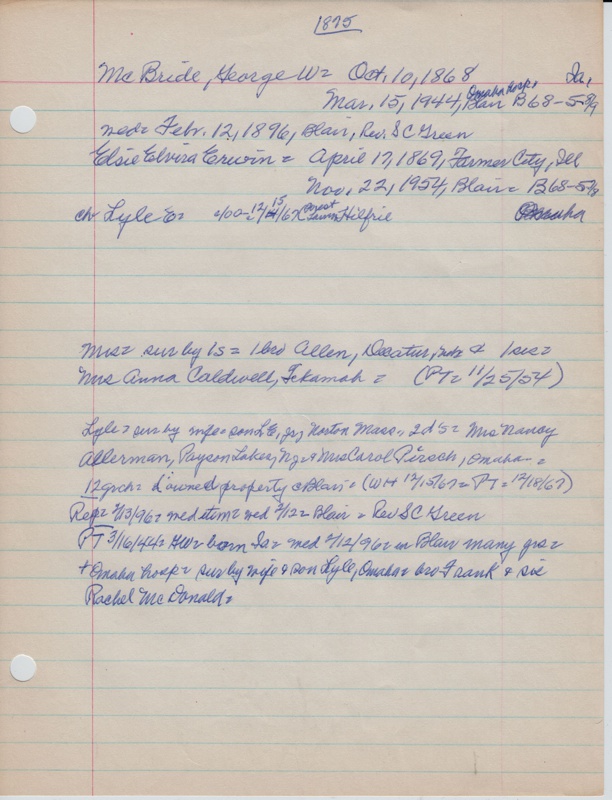 1875
McBride, George W= Oct. 10, 1868 Ia.
Omaha hosp
Mar. 15, 1944, Blair B68-5-
wed= Febr. 12, 1896, Blair, Rev. SC Green
Elsie Elvira Erwin= April 17, 1869, Farmer City, Ill
Nov. 22, 1954, Blair= B68-5-
ch Lyle E= -/00- 12/15/67 Forest Lawn Hilfrie Omaha
Mrs= sur by 1s= 1 bro Allen, Decatur, & 1 sis=
Mrs Anna Caldwell, Tekamah= (PT= 11/25/54)
Lyle= sur by wife= son L E, jr, Norton Mass., 2 d's= Mrs Nancy
Allerman, Payson Lakes, NJ & Mrs Carol Pirsch, Omaha=
12 grch= d owned property c Blair= (WH 12/15/67= PT= 12/18/67)
Rep= 2/13/96= wed item= wed 2/12= Blair= Rev SC Green
PT 3/16/44= GW= born Ia= wed 2/12/96= in Blair many yrs=
+ Omaha hosp= sur by wife & son Lyle, Omaha= bro Frank & sis
Rachel McDonald=